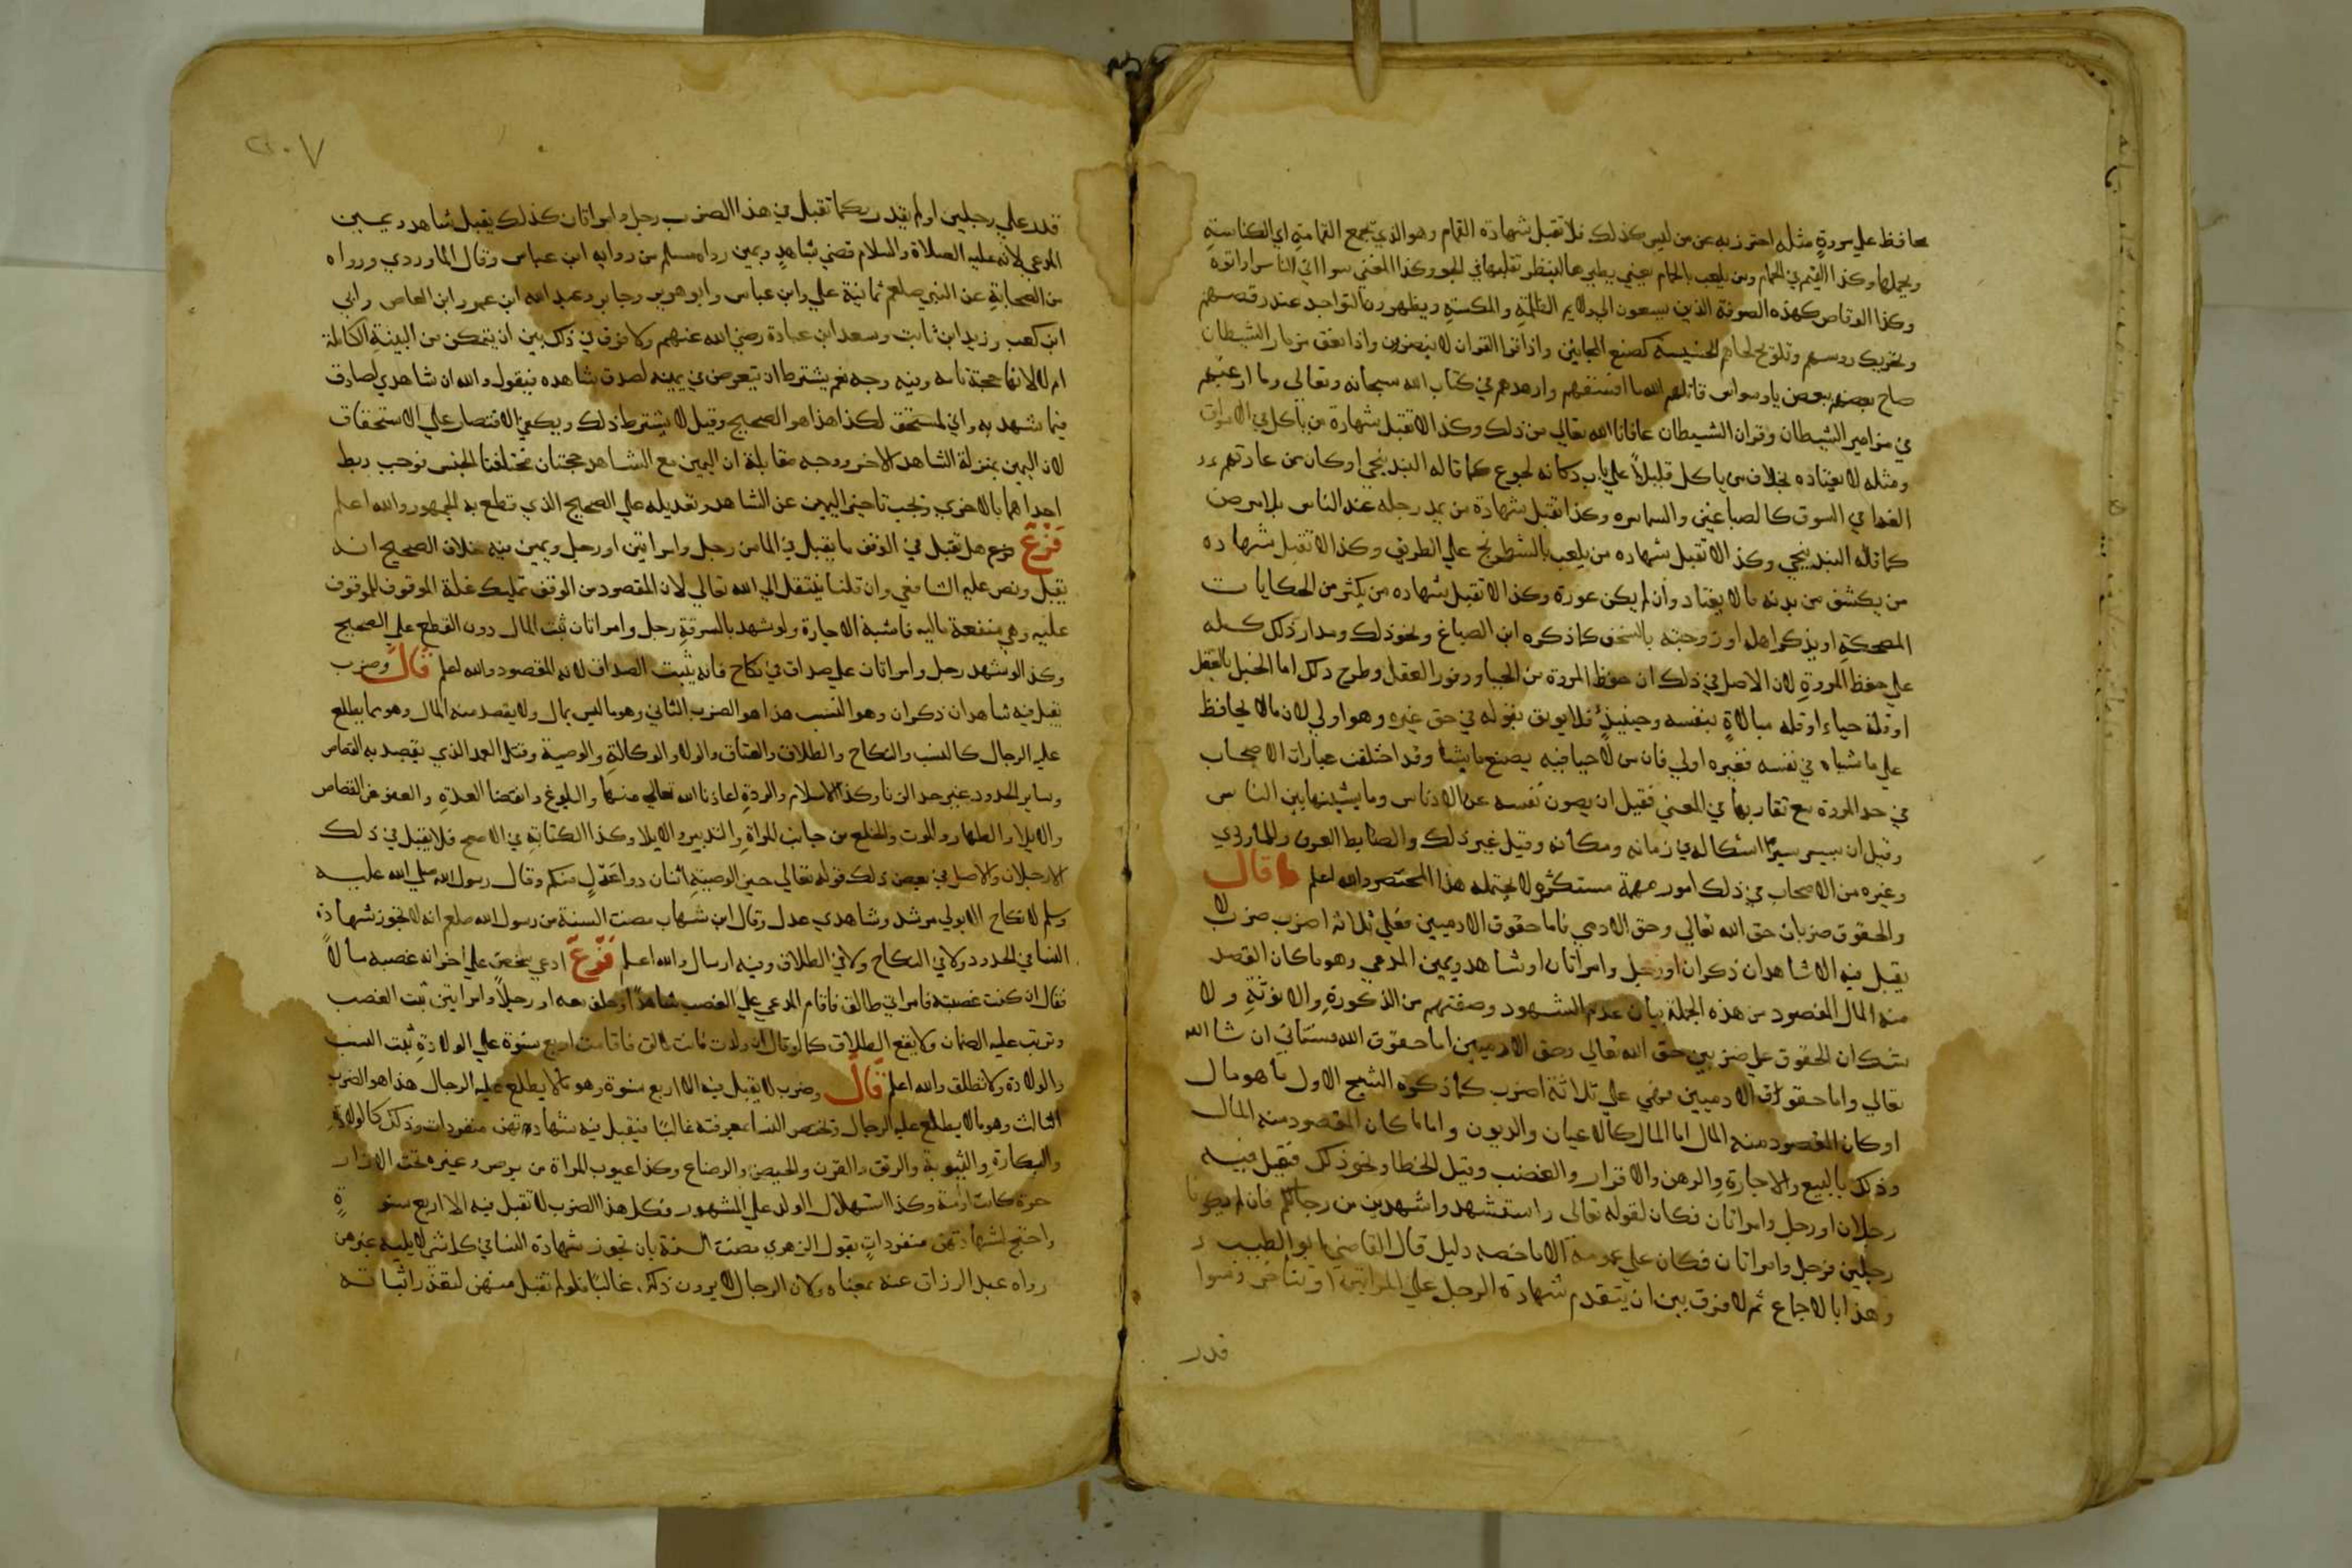 محافظ علي مروة مثله احترز به عن من ليس كذلك فلا تقبل شهادة القمام وهو الذي يجمع القمامة اي الكناسة
ويحملها وكذا القيم في الحمام ومن يلعب بالحمام يعني يطيرها لينظر تقلبها في الجو وكذا المغني سوا اتي الناس او اتوه
وكذا الرقاص كهذه الصوفة الذين يسعون الي ولايم الظلمة والمكسة ويظهرون التواجد عند رقصهم
وتحريك روسهم وتلويح لحاهم الخسيسة كصنع المجانين واذا قرا القران لا ينصتون واذا نعق مزمار الشيطان
صاح بعضهم ببعض يا وسواس قاتلهم الله ما افسقهم وازهدهم في كتاب الله سبحانه وتعالي وما ارغبهم
في مزامير الشيطان وقران الشيطان عافانا الله تعالي من ذلك وكذا لا تقبل شهادة من ياكل في الاسواق
ومثله لا يعتاده بخلاف من ياكل قليلا علي باب دكانه لجوع كما قاله البندنيجي او كان من عادتهم
الغدا في السوق كالصباغين والسماسره وكذا تقبل شهادة من يمد رجله عند الناس بلا مرض
كما قاله البندنيجي وكذا لا تقبل شهاده من يلعب بالشطرنج علي الطريق وكذا لا تقبل شهاده
من يكشف من بدنه ما لا يعتاد وان لم يكن عورة وكذا لا تقبل شهاده من يكثر من الحكايات
المضحكة او يذكر اهله او زوجته بالسخف كما ذكره ابن الصباغ ونحو ذلك ومدار ذلك كله
علي حفظ المروة لان الاصل في ذلك ان حفظ المروة من الحيا ووفور العقل وطرح ذلك اما لخبل بالعقل
او قلة حياء او قله مبالاة بنفسه وحينيذ فلا يوثق بقوله في حق غيره وهو اولي لان من لا يحافظ
علي ما شباه في نفسه فغيره اولي فان من لا حيا فيه يصنع ما يشا وقد اختلفت عبارات الاصحاب
في حد المروة مع تقاربها في المعني فقيل ان يصون نفسه عن الادناس وما يشينها بين الناس
وقيل ان يسير سيرة اشكاله في زمانه ومكانه وقيل غير ذلك والضابط العرف وللماوردي
وغيره من الاصحاب في ذلك امور مهمة مستكثره لا يحتمله هذا المختصر والله اعلم قال
والحقوق ضربان حق الله تعالي وحق الادمي فاما حقوق الادميين فعلي ثلاثة اضرب ضرب لا
يقبل فيه الا شاهدان ذكران او رجل وامراتان او شاهد ويمين المدعي وهو ما كان القصد
منه المال المقصود من هذه الجملة بيان عدد الشهود وصفتهم من الذكورة والانوثة ولا
شك ان الحقوق علي ضربين حق الله تعالي وحق الادميين اما حقوق الله فستاتي ان شا الله
تعالي واما حقوق الادميين فهي علي ثلاثة اضرب كما ذكره الشيخ الاول ما هو مال
او كان المقصود منه المال اما المال كالاعيان والديون واما ما كان المقصود منه المال
وذلك بالبيع والاجارة والرهن والاقرار والغصب وقتل الخطا ونحو ذلك فيقبل فيه
رجلان او رجل وامراتان فكان لقوله تعالي واستشهدوا شهيدين من رجالكم فان لم يكونا
رجلين فرجل وامراتان فكان علي عمومه الا ما خصه دليل قال القاضي ابو الطيب
وهذا بالاجماع ثم لا فرق بين ان يتقدم شهادة الرجل علي المراتين او تتاخر وسوا
قدر
٢٠٧
قدر علي رجلين او لم يقدر وكما تقبل في هذا الضرب رجل وامراتان كذلك يقبل شاهد ويمين
المدعي لانه عليه الصلاة والسلام قضي بشاهد ويمين رواه مسلم من رواية ابن عباس وقال الماوردي ورواه
من الصحابة عن النبي صلعم ثمانية علي وابن عباس وابو هريره وجابر وعبد الله ابن عمرو ابن العاص وابي
ابن كعب وزيد ابن ثابت وسعد ابن عبادة رضي الله عنهم ولا فرق في ذلك بين ان يتمكن من البينة الكاملة
ام لا لانها حجة تامه وفيه وجه نعم يشترط ان يتعرض في يمينه لصدق شاهده فيقول والله ان شاهدي لصادق
فيما شهد به واني لمستحق لكذا هذا هو الصحيح وقيل لا يشترط ذلك ويكفي الاقتصار علي الاستحقاق
لان اليمين بمنزلة الشاهد الاخر ووجه مقابلة ان اليمين مع الشاهد حجتان مختلفتا الجنس فوجب ربط
احداهما بالاخري ويجب تاخير اليمين عن الشاهد وتعديله علي الصحيح الذي قطع به الجمهور والله اعلم
فرع فرع هل تقبل في الوقف ما يقبل في المال من رجل وامراتين او رجل ويمين فيه خلاف الصحيح انه
يقبل ونص عليه الشافعي وان قلنا ينتقل الي الله تعالي لان المقصود من الوقف تمليك غلة الموقوف للموقوف
عليه وهي منفعة ماليه فاشبه الاجارة ولو شهد بالسرقة رجل وامراتان ثبت المال دون القطع علي الصحيح
وكذا لو شهد رجل وامراتان علي صداق في نكاح فانه يثبت الصداق لانه المقصود والله اعلم قال وضرب
يقبل فيه شاهدان ذكران وهو النسب هذا هو الضرب الثاني وهو ما ليس بمال ولا يقصد منه المال وهو مما يطلع
عليه الرجال كالنسب والنكاح والطلاق والعتاق والولا والوكالة والوصية وقتل العمد الذي يقصد به القصاص
وساير الحدود غير حد الزنا وكذا الاسلام والردة اعاذنا الله تعالي منها والبلوغ وانقضا العدة والعفو عن القصاص
والايلا والظهار والموت والخلع من جانب المراة والتدبير والايلا وكذا الكتابة في الاصح فلا يقبل في ذلك
الا رجلان والاصل في بعض ذلك قوله تعالي حين الوصية اثنان ذوا عدل منكم وقال رسول الله صلي الله عليه
وسلم لا نكاح الا بولي مرشد وشاهدي عدل وقال ابن شهاب مضت السنة من رسول الله صلعم انه لا تجوز شهادة
النسا في الحدود ولا في النكاح ولا في الطلاق وفيه ارسال والله اعلم فرع ادعي شخص علي اخر انه غصبه مالا
فقال ان كنت غصبته فامراتي طالق فاقام المدعي علي الغصب شاهدا وحلف معه او رجلا وامراتين ثبت الغصب
وترتب عليه الضمان ولا يقع الطلاق كما لو قال ان ولدت فانت طالق فاقامت اربع نسوة علي الولادة ثبت النسب
والولادة ولا تطلق والله اعلم قال وضرب لا يقبل فيه الا اربع نسوة وهو ما لا يطلع عليه الرجال هذا هو الضرب
الثالث وهو ما لا يطلع عليه الرجال وتختص النسا بمعرفته غالبا فيقبل فيه شهادتهن منفردات وذلك كالولادة
والبكارة والثيوبة والرتق والقرن والحيض والرضاع وكذا عيوب المراة من برص وغيره تحت الازار
حرة كانت او امة وكذا استهلال الولد علي المشهور فكل هذا الضرب لا تقبل فيه الا اربع نسوة
واحتج لشهادتهن منفردات بقول الزهري مضت السنة بان تجوز شهادة النسا في كل شي لا يليه غيرهن
رواه عبد الرزاق عنه بمعناه ولان الرجال لا يرون ذلك غالبا فلو لم تقبل منهن لتعذر اثباته